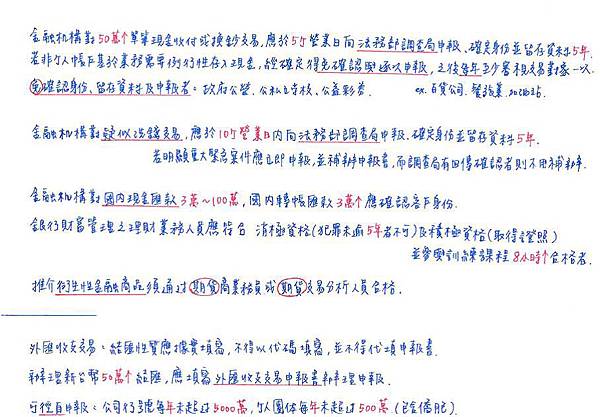 金融机構對50萬↑單筆現金收付或換鈔交易,應於5個營業日向法務部調查局申報、確定身份並留存資料5年.
若非个人帳戶基於業務需要例行性存入現金,經確定得免確認與逐次申報,之後每年至少審視交易對象一次.
免確認身份、留存資料及申報者:政府公營、公私立学校、公益彩券. ex. 百貨公司、
金融机構對疑似洗錢交易,應於10个營業日內向法務部調查局申報、確定身份並留存資料5年.
若明顯重大緊急案件應立即申報,並補辦申報書,而調查局有回傳確認者則不用補辦.
金融机構對國內現金匯款3萬~100萬,國內轉帳匯款3萬↑應確認客戶身份.
銀行財富管理之理財業務人員應符合 消極資格(犯罪未逾5年者不可)及積極資格(取得證照)
並參與訓練課程 8小時↑合格者.
推介衍生性金融商品須通過期貨商業務員或期貨交易分析人員合格.
外匯收支交易:結匯性質應據實填寫,不得以代碼填寫,並不得代填申報書.
辦理新台幣50萬↑結匯,應填寫外匯收支交易申報書辦理申報.
可逕自申報:公司行號每年未超过5000萬,个人團体每年未超过500萬(含僑胞).